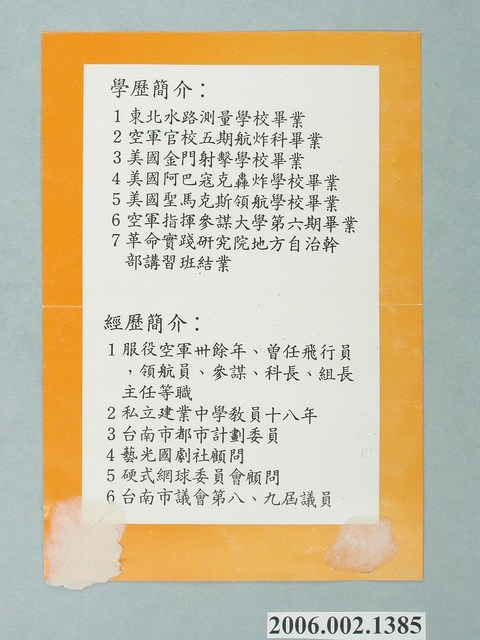 學歷簡介：
1 東北水路測量學校畢業
2 空軍官校五期航炸科畢業
3 美國金門射擊學校畢業
4 美國阿巴寇克轟炸學校畢業
5 美國聖馬克斯領航學校畢業
6 空軍指揮參謀大學第六期畢業
7 革命實踐研究院地方自治幹
部講習班結業
經歷簡介：
1 服役空軍卅餘年、曾任飛行員
，領航員、參謀、科長、組長
主任等職
2 私立建業中學教員十八年
3 台南市都市計劃委員
4 藝光國劇社顧問
5 硬式網球委員會顧問
6 台南市議會第八、九屆議員
2006.002.1385